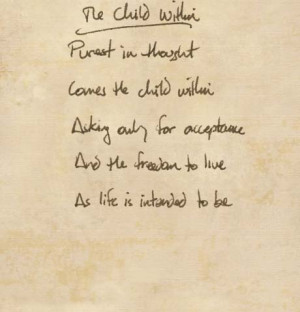 The Child Within
Purest in thought
Comes the child within
Asking only for acceptance
And the freedom to live
As life is intended to be